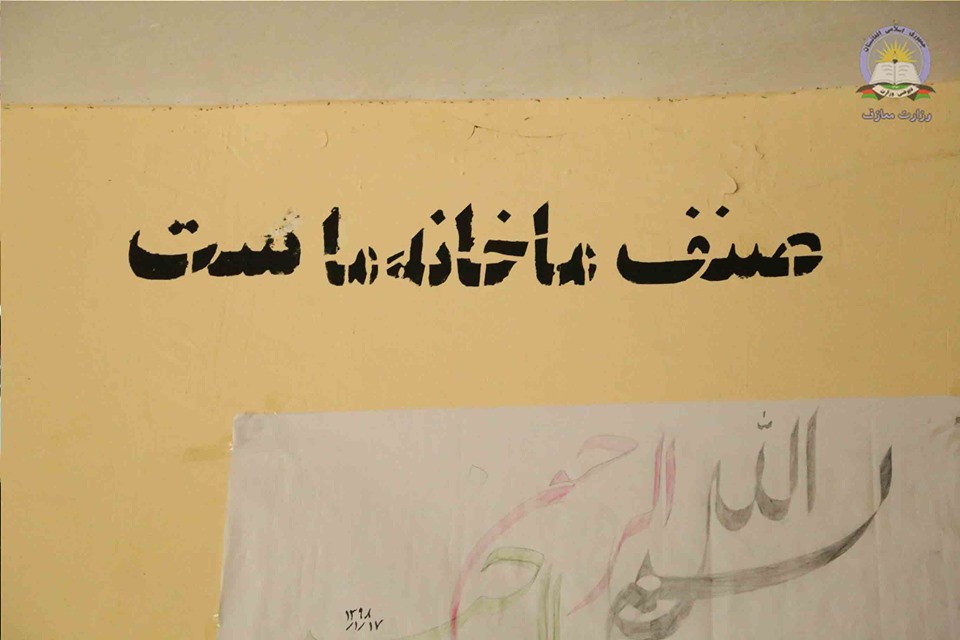 جمهوری اسلامی افغانستان
وزارت معارف
صنف ما خانهٔ ما ست
بسم الله الرحمن الرحیم
۱۳۹۸
/۱/۱۷